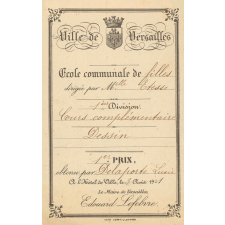 Ville de Versailles
École communale de filles
dirigée par Melle
1ère Division.
Cours complémentaire
Dessin
1er PRIX,
obtenu par Delaporte
A l'Hôtel de Ville, le Août
Le Maire de Versailles,
Edouard Lefebvre.